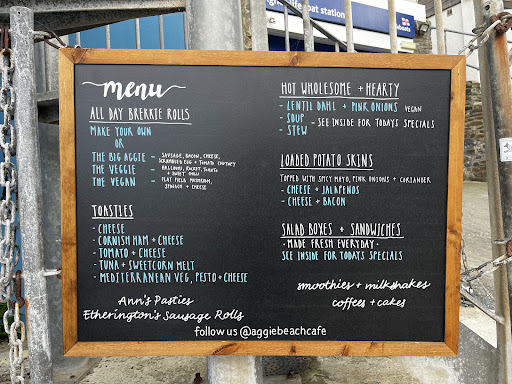 life boat station
lifeboats
menu
ALL DAY BREKKIE ROLLS
MAKE YOUR OWN
OR
THE BIG AGGIE - SAUSAGE, BACON, CHEESE,
SCRAMBLED EGG + TOMATO CHUTNEY
THE VEGGIE - HALLOUMI, ROCKET, TOMATO
+ SWEET CHILLI
THE VEGAN - FLAT FIELD MUSHROOM,
SPINACH + CHEESE
TOASTIES
- CHEESE
- CORNISH HAM + CHEESE
- TOMATO + CHEESE
- TUNA + SWEETCORN MELT
- MEDITERRANEAN VEG, PESTO + CHEESE
Ann's Pasties
Etherington's Sausage Rolls
HOT WHOLESOME + HEARTY
- LENTIL DAHL + PINK ONIONS VEGAN
- SOUP
- SEE INSIDE FOR TODAYS SPECIALS
- STEW
LOADED POTATO SKINS
TOPPED WITH SPICY MAYO, PINK ONIONS + CORIANDER
- CHEESE + JALAPENOS
- CHEESE + BACON
SALAD BOXES + SANDWICHES
· MADE FRESH EVERYDAY ·
SEE INSIDE FOR TODAYS SPECIALS
smoothies + milkshakes
coffees + cakes
follow us @aggiebeachcafe